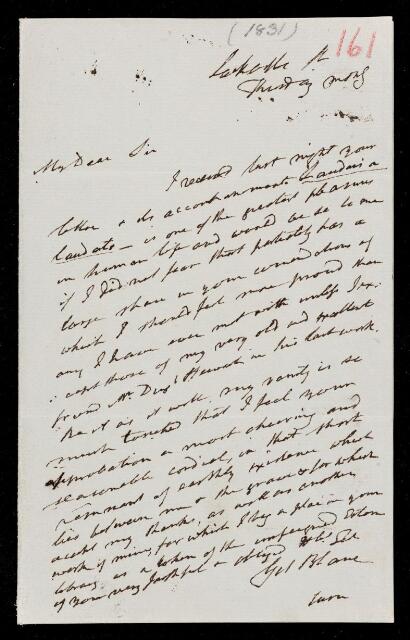 (1831)
161
Sackville St
Thursday morng
My Dear Sir
I received last night your
letter & its accompaniments Laudari a
laudato — is one of the greatest pleasures
in human life and would be so to me
if I did not fear that partiality has a
large share in your commendations of
which I should feel more proud than
any I have ever met with unless I ex-
: cept those of my very old and excellent
friend Mr Dug.d Stewart in his last work.
Be it as it will, my vanity is so
much touched that I feel your
approbation a most cheering and
seasonable cordial, in that short
remnant of earthly existence which
lies between me & the grave & for which
accept my thanks, as well as another
work of mine, for which I beg a place in your
library as a token of the unfeigned esteem
of your very faithful & obliged
Gil Blane
turn